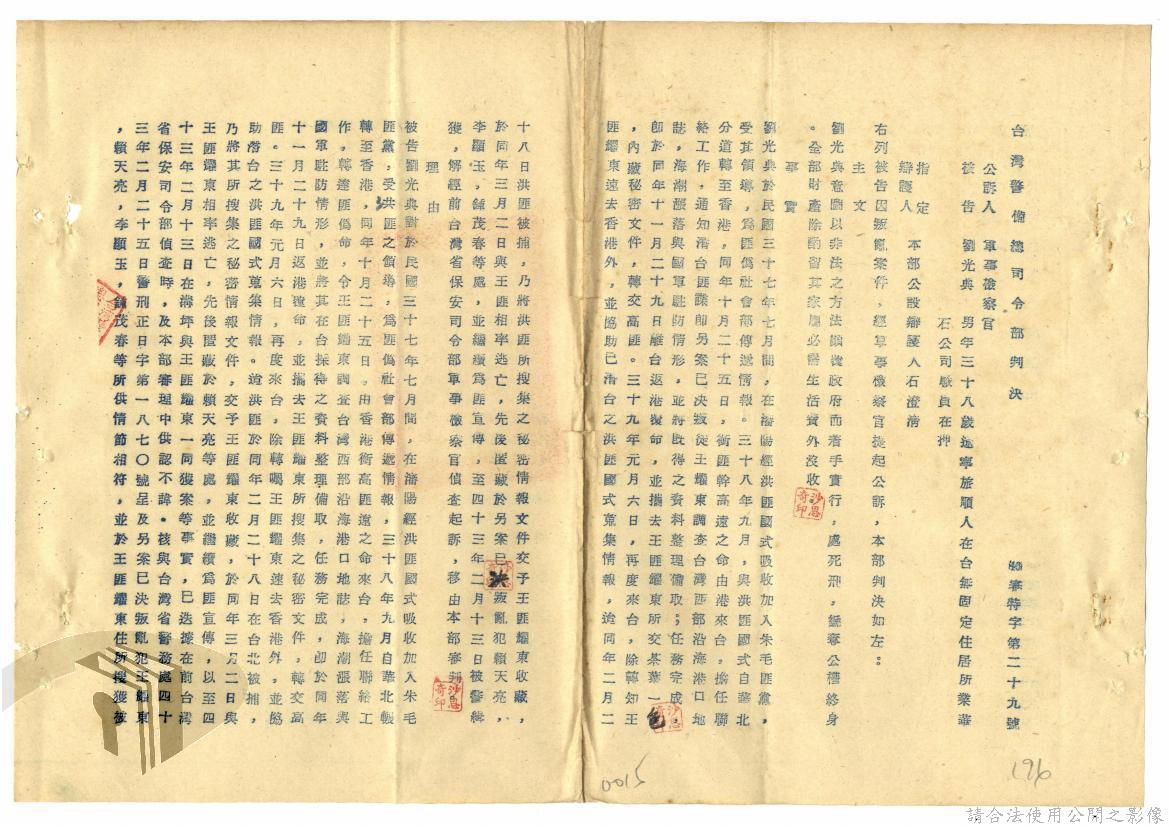 台灣警備總司令部判決
審特字第二十九號
公訴人　軍事檢察官
被告　劉光典　男年三十八歲遼寧旅順人在台無固定住居所業華
石公司職員在押
指定
辯護人　本部公設辯護人石澄清
右列被告因叛亂案件，經軍事檢察官提起公訴，本部判決如左。
主文
劉光典意圖以非法之方法顛覆政府而着手實行，處死刑，褫奪公權終身
。全部財產除酌留其家屬必需生活費外沒收
事實
劉光典於民國三十七年七月間，在瀋陽經洪匪國式吸收加入朱毛匪黨，
受其領導，爲匪僞社會部傳遞情報。三十八年九月，與洪匪國式自華北
分道轉至香港，同年十月二十五日，銜匪幹高遠之命由港來台，擔任聯
絡工作，通知潛台匪諜即另案已決叛徒王耀東調查台灣匪部沿海港口地
誌，海潮漲落與國軍駐防情形，並將既得之資料整理備取；任務完成，
即於同年十一月二十九日離台返港覆命，並攜去王匪耀東所交茶葉一包
，內藏秘密文件，轉交高匪。三十九年元月六日，再度來台，除轉知王
匪耀東速去香港外，並協助已潛台之洪匪國式蒐集情報，迨同年二月二
十八日洪匪被捕，乃將洪匪所搜集之秘密情報文件交予王匪耀東收藏，
於同年三月二日與王匪相率逃亡，先後匿藏於另案已決叛亂犯賴天亮，
李顯玉，鍾茂春等處，並繼續爲匪宣傳，至四十三年二月十三日被警緝
獲，解經前台灣省保安司令部軍事檢察官偵查起訴，移由本部審判
理由
被告劉光典對於民國三十七年七月間，在瀋陽經洪匪國式吸收加入朱毛
匪黨，受洪匪之領導，爲匪僞社會部傳遞情報，三十八年九月自華北輾
轉至香港，同年十月二十五日。由香港銜高匪遠之命來台，擔任聯絡工
作，轉達匪僞命，令王匪耀東調查台灣西部沿海港口地誌，海潮漲落與
國軍駐防情形，並將其在台採得之資料整理備取，任務完成，即於同年
十一月二十九日返港覆命，並攜去王匪耀東所搜集之秘密文件，轉交高
匪。三十九年元月六日，再度來台，除轉囑王匪耀東速去香港外，並協
助潛台之洪匪國式蒐集情報。迨洪匪於同年二月二十八日在台北被捕，
乃將其所搜集之秘密情報文件，交予王匪耀東收藏，於同年三月二日與
王匪耀東相率逃亡，先後匿藏於賴天亮等處，並繼續爲匪宣傳，以至四
十三年二月十三日在海坪與王匪耀東一同獲案等事實，已迭據在前台灣
省保安司令部偵查時，及本部審理中供認不諱。核與台灣省警務處四十
三年二月二十五日警刑正日字第一八七〇號呈及另案已決叛亂犯王耀東
，賴天亮，李顯玉，鍾茂春等所供情節相符，並於王匪耀東住所搜獲被
0015
196
請合法使用公開之影像